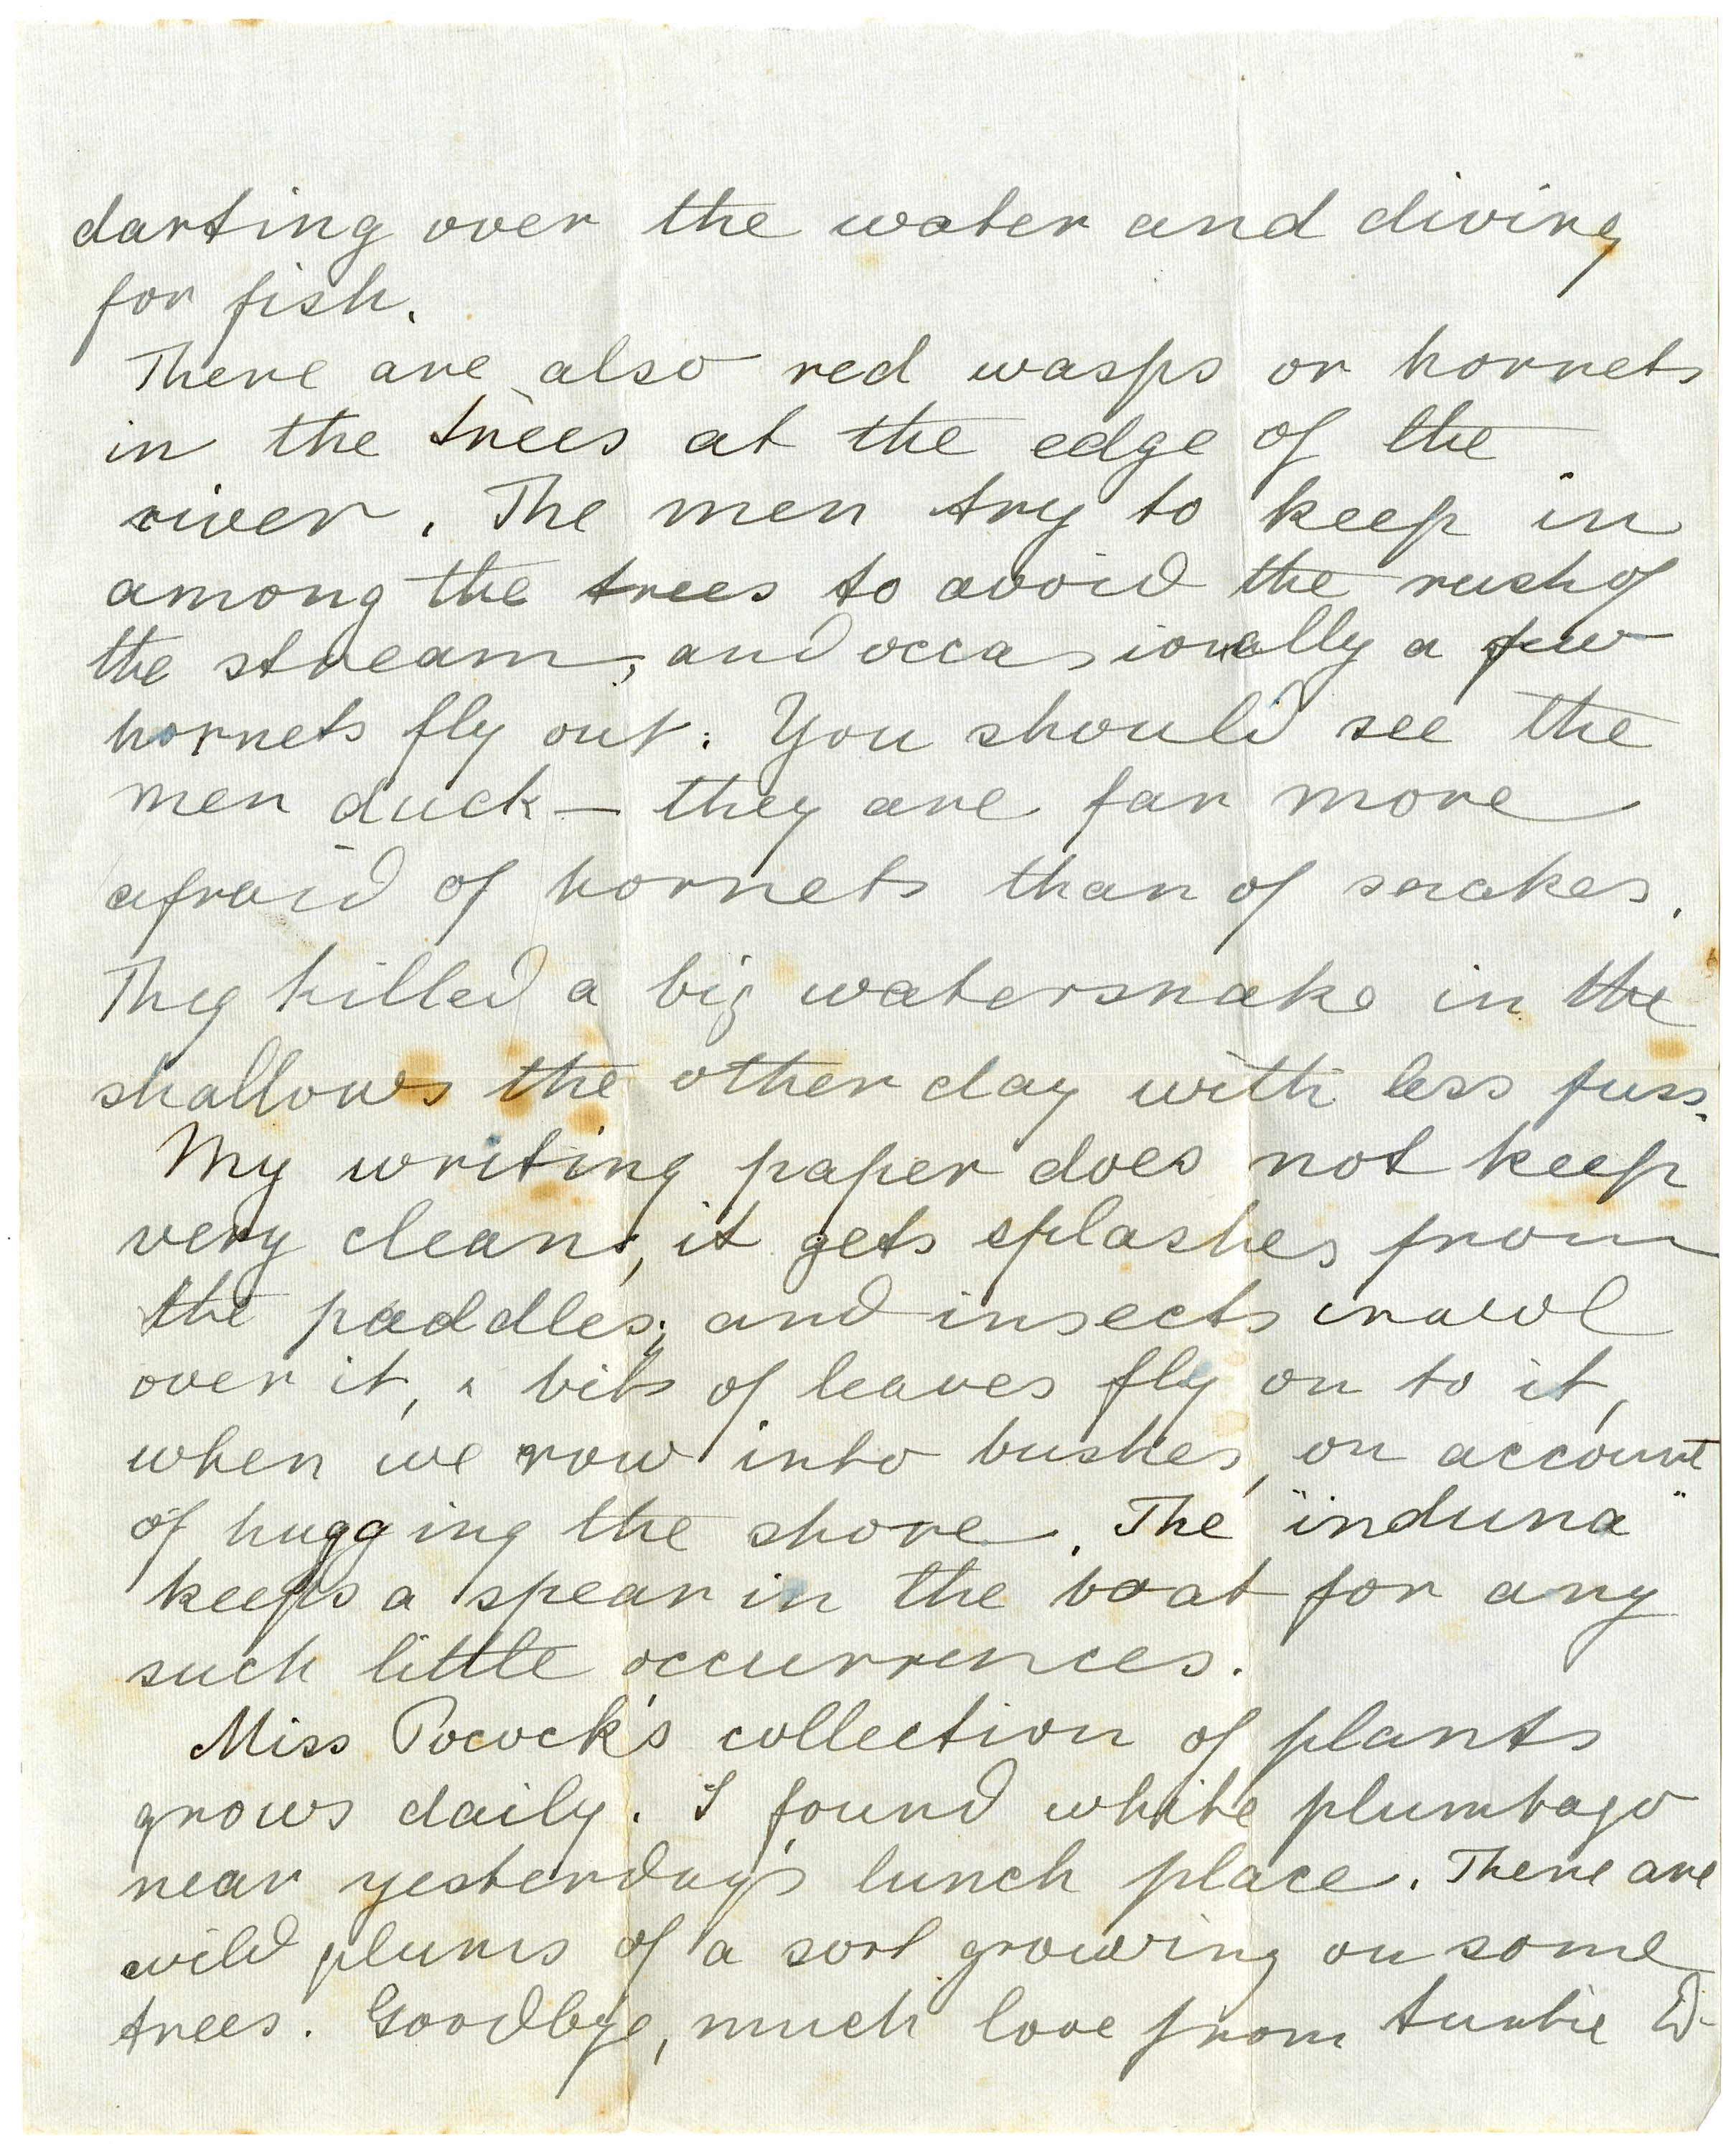 darting over the water and diving
for fish.
There are also red wasps or hornets
in the trees at the edge of the
river. The men try to keep in
among the trees to avoid the rush of
the stream, and occasionally a few
hornets fly out. You should see the
men duck — they are far more
afraid of hornets than of snakes.
They killed a big watersnake in the
shallows the other day with less fuss.
My writing paper does not keep
very clean, it gets splashes from
the paddles, and insects crawl
over it, & bits of leaves fly on to it,
when we row into bushes, on account
of hugging the shore. The "induna"
keeps a spear in the boat for any
such little occurrences.
Miss Pocock's collection of plants
grows daily. I found white plumbago
near yesterday's lunch place. There are
wild plums of a sort growing on some
trees. Goodbye, much love from Auntie D.